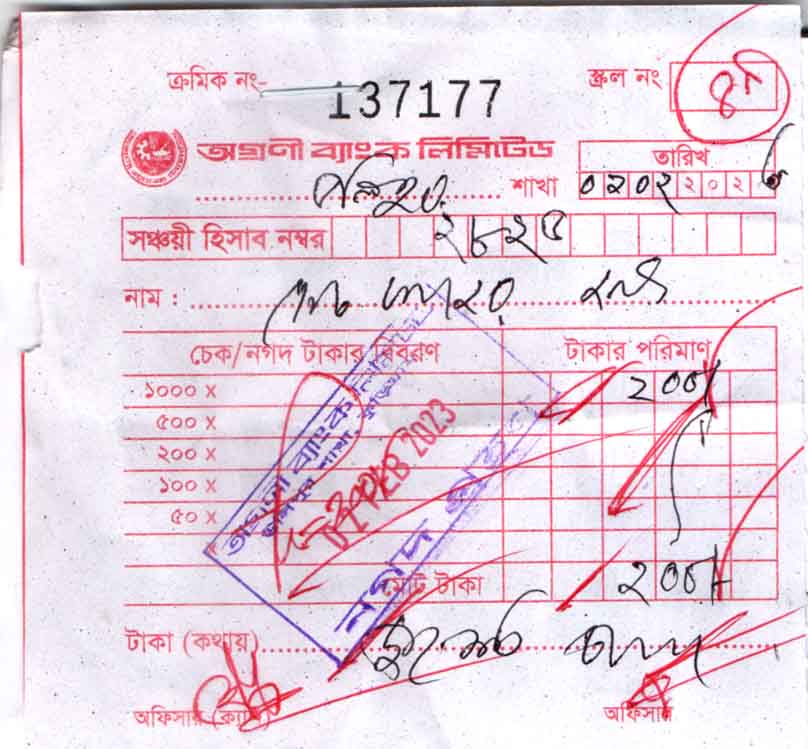 ক্রমিক নং- 137177 স্ক্রল নং
অগ্রণী ব্যাংক লিমিটেড তারিখ
শাখা ০২০২২০২৩
সঞ্চয়ী হিসাব নম্বর ২৮২৫
নাম :
চেক/নগদ টাকার বিবরণ টাকার পরিমাণ
১০০০ X ২০০/-
৫০০ X
২০০ X
১০০ X
৫০ X
X
মোট টাকা ২০০/-
টাকা (কথায়) দুইশত টাকা
অফিসার (ক্যাশ) অফিসার
অগ্রণী ব্যাংক লিমিটেড
FEB 2023
নগদ গ্রহণ